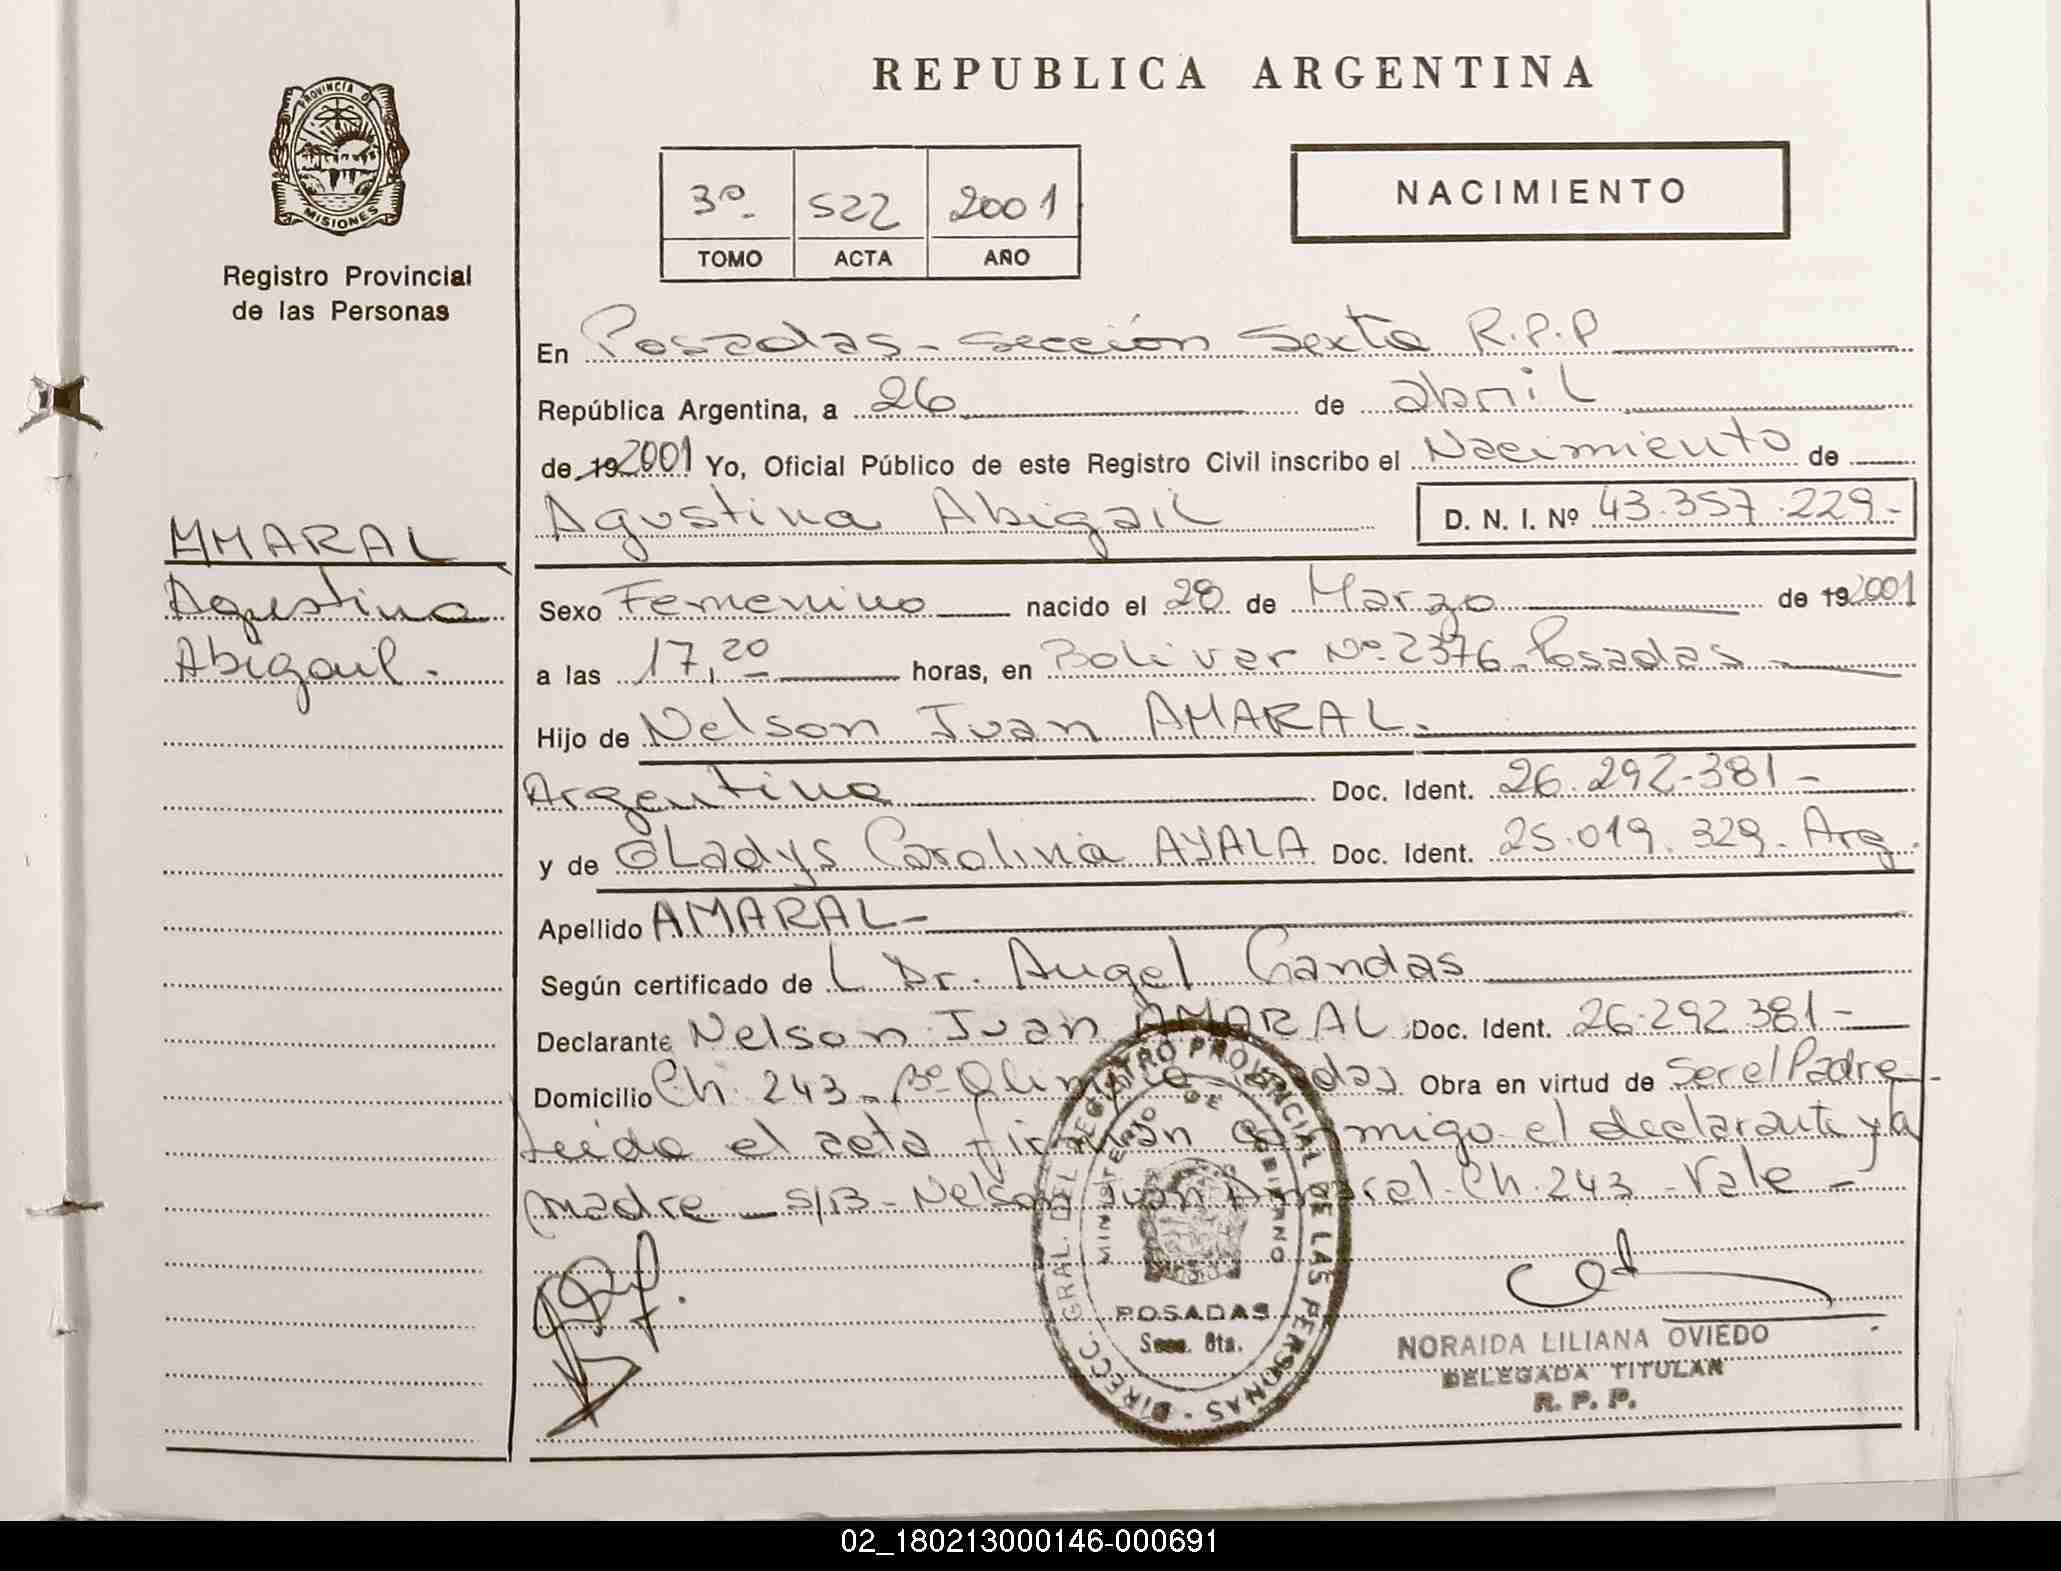 REPUBLICA ARGENTINA
PROVINCIA DE
MISIONES
Registro Provincial
de las Personas
3º. 522 2001
TOMO ACTA AÑO
NACIMIENTO
En Posadas - Sección Sexta R.P.P
República Argentina, a 26 de abril
de 19 2001 Yo, Oficial Público de este Registro Civil inscribo el Nacimiento de
Agustina Abigail D. N. I. Nº 43.357.229-
AMARAL
Agustina
Abigail.
Sexo Femenino nacido el 28 de Marzo de 19 2001
a las 17,20 horas, en Bolivar Nº 2376 - Posadas
Hijo de Nelson Juan AMARAL.
Argentino Doc. Ident. 26.292.381-
y de Gladys Carolina AYALA Doc. Ident. 25.019.329- Arg.
Apellido AMARAL-
Según certificado de Dr. Angel Gandas
Declarante Nelson Juan AMARAL Doc. Ident. 26.292.381-
Domicilio Ch. 243 - Bº Olimpico Posadas Obra en virtud de Ser el Padre
Leida el acta firman conmigo el declarante y la
madre - S/B - Nelson Juan Amaral - Ch. 243 - Vale -
DIRECC. GRAL. DEL REGISTRO PROVINCIAL DE LAS PERSONAS
MINISTERIO DE GOBIERNO
POSADAS
Secc. 6ta.
NORAIDA LILIANA OVIEDO
DELEGADA TITULAR
R. P. P.
02_180213000146-000691